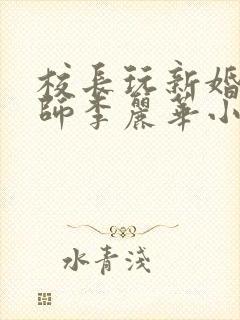 校長玩新婚
師李麗華小
水青淺